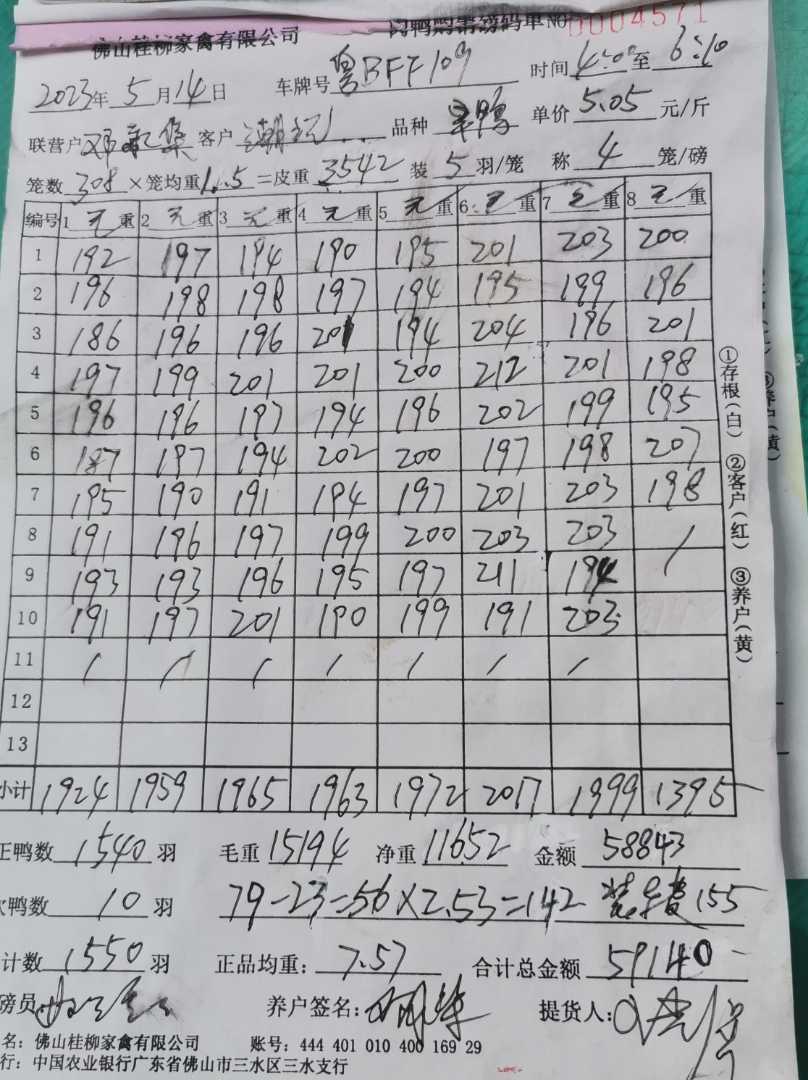 佛山桂柳家禽有限公司 NO 0004571
2023年 5月14日 车牌号 粤BFF109 时间 4:00至 6:10
联营户 客户 潮记 品种 单价 5.05 元/斤
笼数 308 ×笼均重 11.5 =皮重 3542 装 5 羽/笼 称 4 笼/磅
编号 1 毛重 2 毛重 3 毛重 4 毛重 5 毛重 6 毛重 7 毛重 8 毛重
1 192 197 194 190 195 201 203 200
2 196 198 198 197 194 195 199 196
3 186 196 196 201 194 204 196 201
4 197 199 201 201 200 212 201 198
5 196 196 197 194 196 202 199 195
6 187 197 194 202 200 197 198 207
7 195 190 191 194 197 201 203 198
8 191 196 197 199 200 203 203 /
9 193 193 196 195 197 211 194
10 191 197 201 190 199 191 203
11 / / / / / / /
12
13
小计 1924 1959 1965 1963 1972 2017 1999 1395
正鸭数 1540 羽 毛重 15194 净重 11652 金额 58843
次鸭数 10 羽 79-23=56×2.53=142 装车费 155
计数 1550 羽 正品均重: 7.57 合计总金额 59140
磅员 养户签名: 提货人:
名: 佛山桂柳家禽有限公司 账号: 444 401 010 400 169 29
行: 中国农业银行广东省佛山市三水区三水支行
①存根(白) ②客户(红) ③养户(黄)